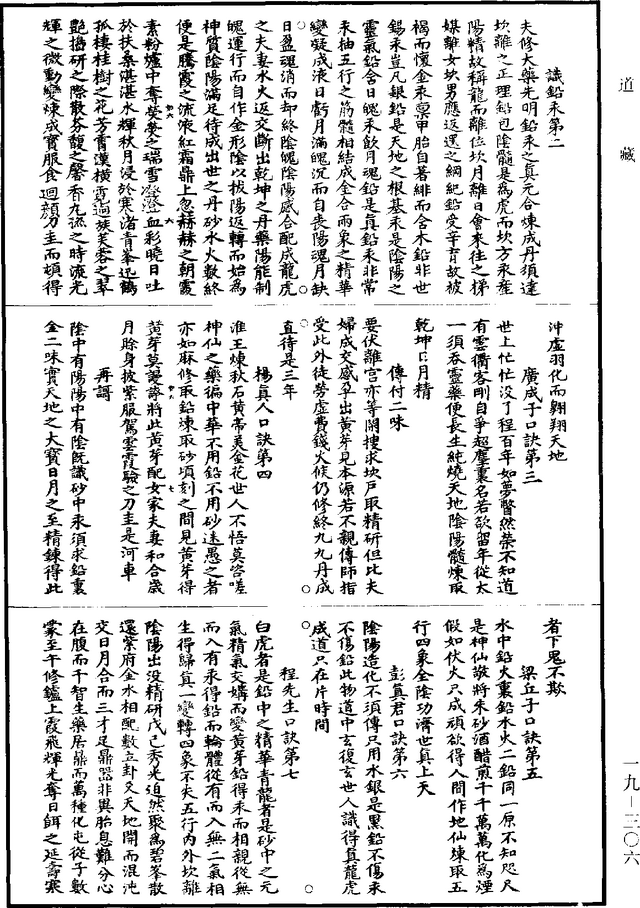 道藏
識鉛汞第二
夫修大藥先明鉛汞之真元合煉成丹須達
坎離之正理鉛包陰髓是為虎而坎方汞產
陽精故稱龍而離位坎月離日會來往之梯
媒離女坎男應返還之綱紀鉛受辛育故被
褐而懷金汞稟甲胎自著緋而含木鉛非世
錫汞豈凡銀鉛是天地之根基汞是陰陽之
靈氣鉛含日魄汞飲月魂鉛是真鉛汞非常
汞抽五行之筋髓相結成金合兩象之精華
變凝成液日虧月滿魄沉而自喪陽魂月缺
日盈魂消而却終陰魄陰陽感合配成龍虎
之夫妻水火返交斷出乾坤之丹藥陽能制
魄運行而自作金形陰以拔陽返轉而始為
神質陰陽滿足待成出世之丹砂水火數終
便是騰霞之流液紅霜鼎上忽赫赫之朝霞
素粉爐中奪熒熒之瑞雪澄澄血彩曉日吐
於扶桑湛湛水輝秋月浸於寒渚青峯迅鶴
孤棲桂樹之花芳霄漢橫霓遍簇芙蓉之翠
艷搗研之際散芬馥之馨香九泒之時流光
輝之微動變煉成寶服食迴顏刀圭而頓得
沖虛羽化而翺翔天地
廣成子口訣第三
世上忙忙沒了程百年如夢瞥然榮不知道
有雲衢客剛自爭超塵裏名若欲留年從太
一須吞靈藥便長生純燒天地陰陽髓煉取
乾坤日月精
傳付二味
要伏離宮亦等閑搜求坎戶取精研但比夫
婦成交感孕出黃芽見本源若不親傳師指
受此外徒勞虛費錢火候仍修終九九丹成
直待是三年
楊真人口訣第四
淮王煉秋石黃帝美金花世人不悟莫咨嗟
神仙之藥徧中華不用鉛不用砂迷愚之者
亦如麻修取鉛煉取砂頃刻之間見黃芽得
黃芽莫謾誇將此黃芽配女家夫妻和合歲
月賒身披紫服駕雲霞驗之刀圭是河車
再謌
陰中有陽陽中有陰既識砂中汞須求鉛裏
金二味實天地之大寶日月之至精鍊得此
者下鬼不欺
梁丘子口訣第五
水中鉛火裏鉛水火二鉛同一原不知咫尺
是神仙敬將朱砂酒醋煎千千萬萬化為煙
假如伏火只成頑欲得人間作地仙煉取五
行四象全陰功濟世真上天
彭真君口訣第六
陰陽造化不須傳只用水銀是黑鉛不傷汞
不傷鉛此物道中玄復玄世人識得真龍虎
成道只在片時間
程先生口訣第七
白虎者是鉛中之精華青龍者是砂中之元
氣精氣交媾而變黃芽鉛得汞而相親從無
而入有汞得鉛而輪體從有而入無二氣相
生得歸真一變轉四象不失五行內外坎離
陰陽出沒精研戊己秀光迫然聚為碧峯散
還紫府金水相配數立卦爻天地開而混沌
交日月合而三才足鼎器非異胎息難分心
在腹而千智生藥居鼎而萬種化屯從子數
蒙至午修鑪上霞飛輝光奪日餌之延壽寒
一九－三〇六